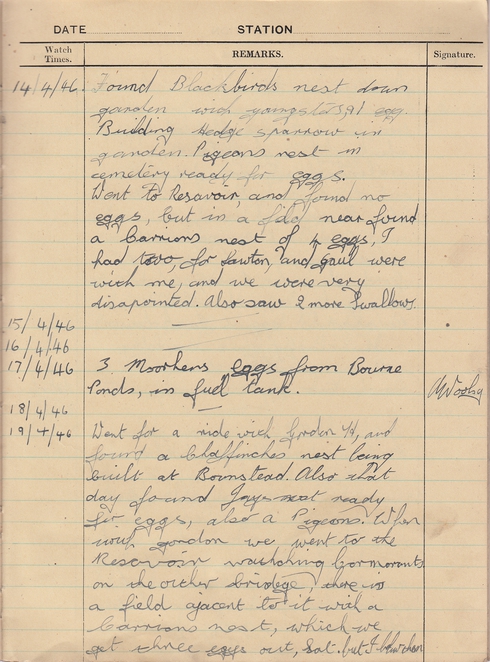 DATE STATION
Watch Times. REMARKS. Signature.
14/4/46. Found Blackbirds nest down
garden with youngsters, 1 egg.
Building Hedge sparrow in
garden. Pigeons nest in
cemetery ready for eggs.
Went to Resavoir, and found no
eggs, but in a field near found
a Carrions nest of 4 eggs, I
had two, for Lawton, and Gaul were
with me, and we were very
disapointed. Also saw 2 more Swallows.
15/4/46
16/4/46
17/4/46 3 Moorhens eggs from Bourne
Ponds, in fuel tank.
18/4/46
19/4/46 Went for a ride with H, and
found a Chaffinches nest being
built at Bounstead. Also that
day found Jays nest ready
for eggs, also a Pigeons. When
with gordon we went to the
Reservoir watching Cormorants
on the other bridege, there is
a field ajacent to it with a
Carrions nest, which we
get three eggs out, Sat. but I